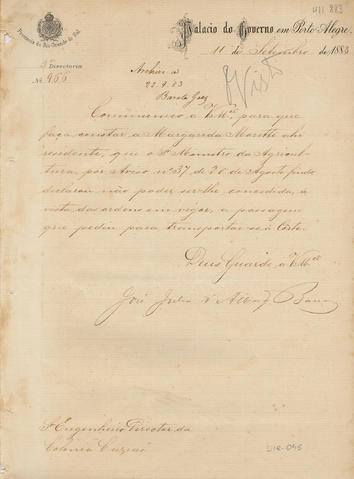 411 883
Provincia do Rio Grande do Sul
Palacio do Governo em Porto Alegre,
11 de Setembro de 1883
Directoria
Nº 966
Archive-se
22.9.83
Visto
Communico a VMcê, para que
faça constar a Margarida Moretti ahi
residente, que o Sr Ministro da Agricul-
tura, por Aviso nº 37, de 25 de Agosto findo
declarou não poder ser-lhe concedida, á
vista das ordens em vigor, a passagem
que pediu para transportar-se á Côrte.
Deus Guarde a VMcê
José Julio d'Albuqe Barros
Sr Engenheiro Director da
Colonia Caxias